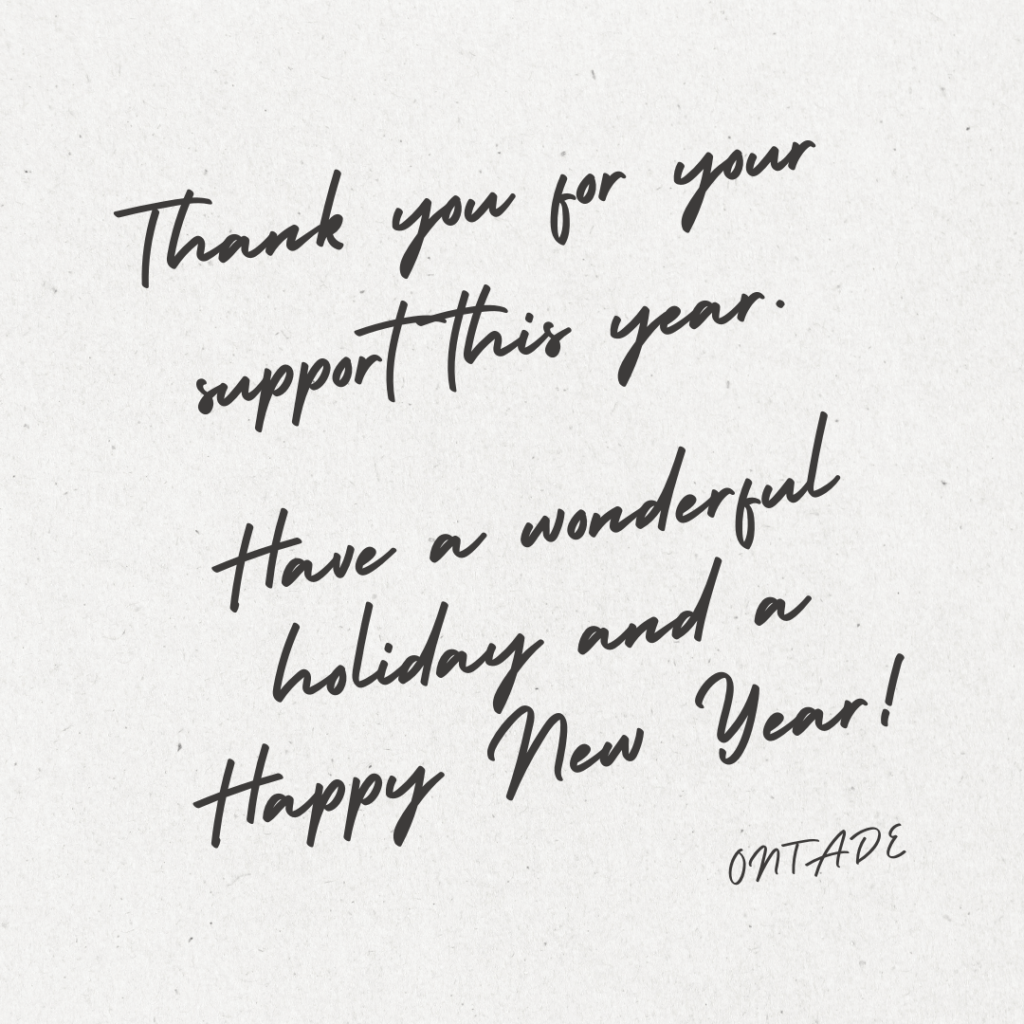 Thank you for your
support this year.
Have a wonderful
holiday and a
Happy New Year!
ONTADE